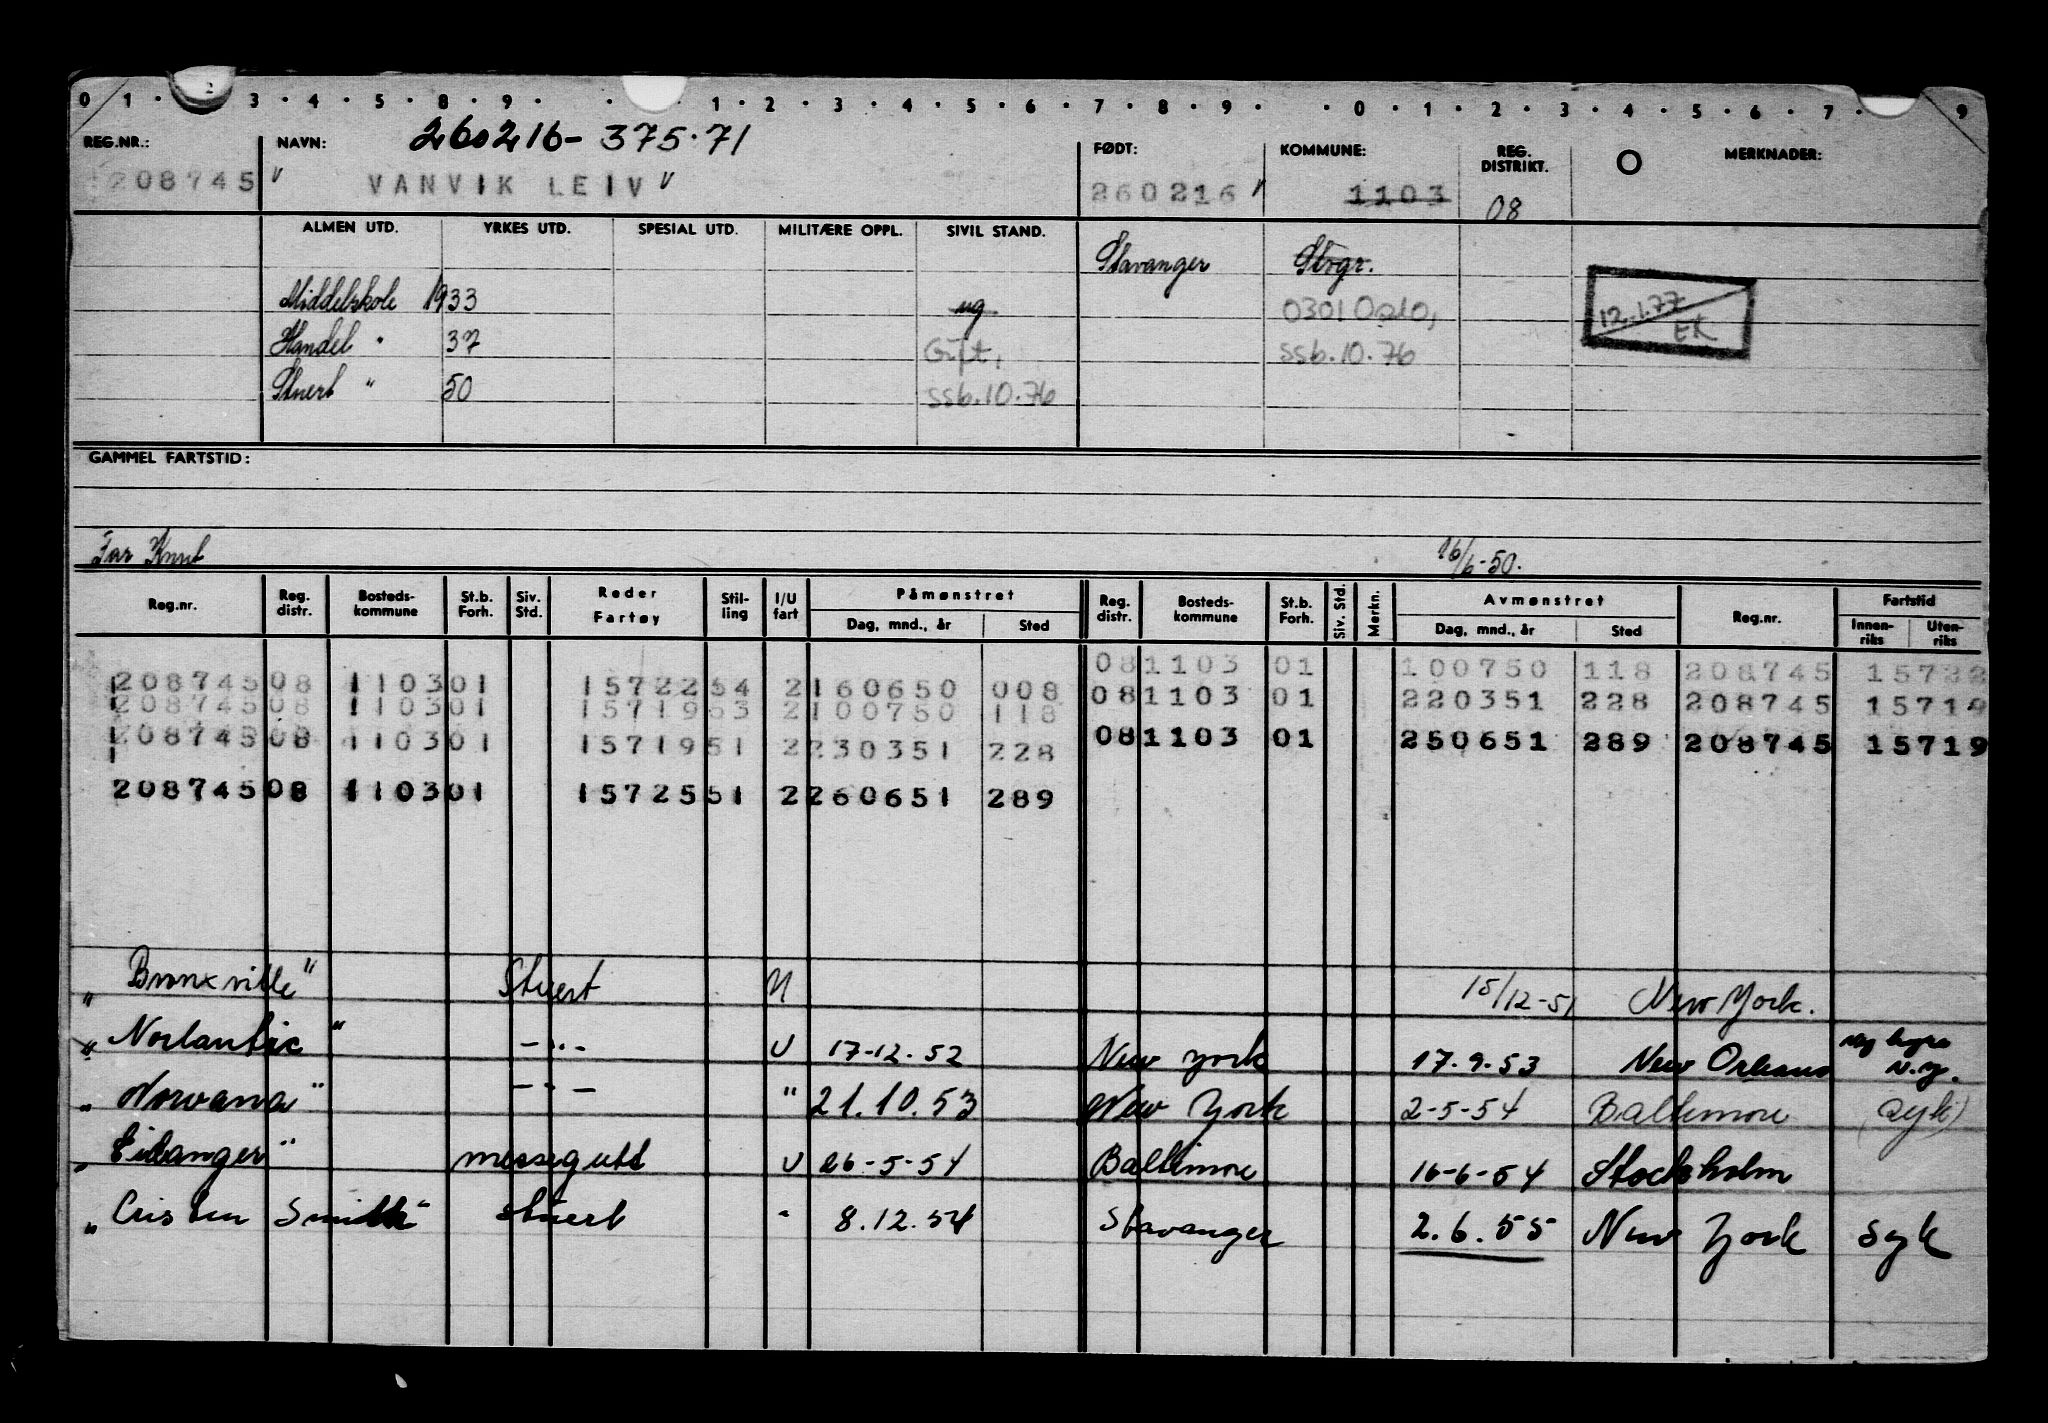 0 1 · 2 3 · 4 · 5 · 8 · 9 · · 1 · 2 · 3 · 4 · 5 · 6 · 7 · 8 · 9 · · 0 · 1 · 2 · 3 · 4 · 5 · 6 · 7 · 9
REG.NR.: NAVN: 260216- 375·71 FØDT: KOMMUNE: REG. DISTRIKT. O MERKNADER:
208745 VANVIK LEIV 260216 1103 08
ALMEN UTD. YRKES UTD. SPESIAL UTD. MILITÆRE OPPL. SIVIL STAND.
Stavanger Stvgr.
Middelskole 1933 ug 0301 Oslo, 12.1.77
Handel " 37 Gift, ssb.10.76 EK
Stuert " 50 ssb.10.76
GAMMEL FARTSTID:
Far Knut 16/6-50.
Reg.nr. Reg. distr. Bosteds- kommune St.b. Forh. Siv. Std. Reder Fartøy Stil- ling I/U fart Påmønstret Reg. distr. Bosteds- kommune St.b. Forh. Siv. Std. Merkn. Avmønstret Reg.nr. Fartstid
Dag, mnd., år Sted Dag, mnd., år Sted Innen- riks Uten- riks
208745 08 1103 01 15722 54 2 160650 008 08 1103 01 100750 118 208745 15722
208745 08 1103 01 15719 53 2 100750 118 08 1103 01 220351 228 208745 15719
208745 08 1103 01 15719 51 2 230351 228 08 1103 01 250651 289 208745 15719
208745 08 1103 01 15725 51 2 260651 289
" Bronxville " Stuert U 15/12-51 New York.
" Norlantic " -"- U 17-12.52 New York 17.9.53 New Orleans N.Y.
" Norvana " -"- " 21.10.53 New York 2-5-54 Baltimore (syk)
" Eidanger " messegutt U 26-5-54 Baltimore 16-6-54 Stockholm
" Cristen Smith " stuert " 8.12.54 Stavanger 2.6.55 New York syk